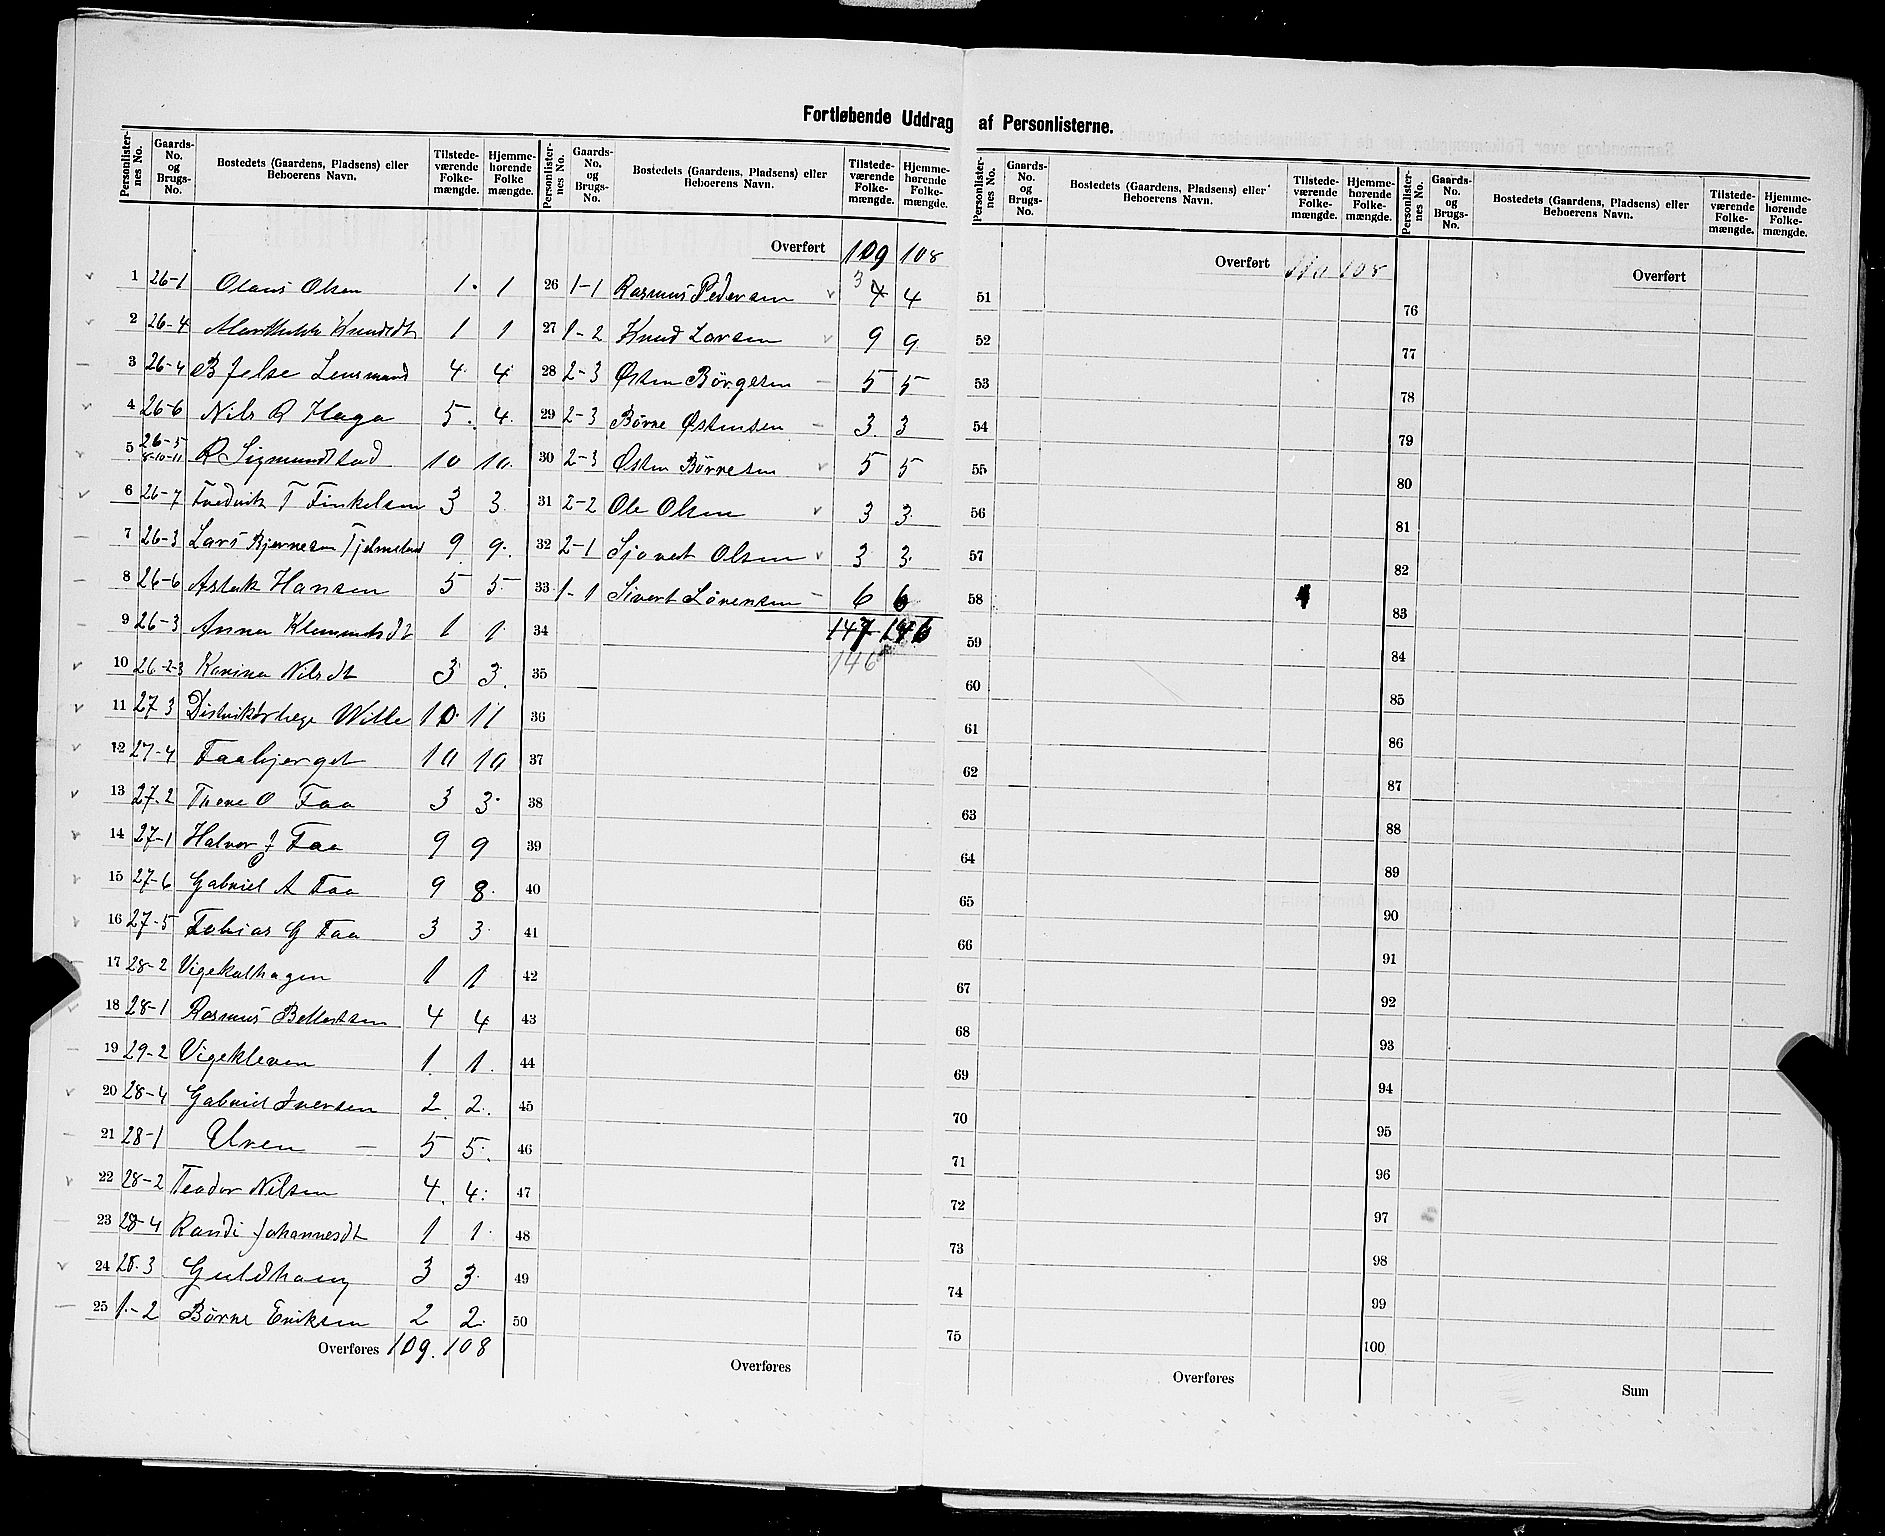 Fortløbende Uddrag af Personlisterne.
Personlisternes No. | Gaards-No. og Brugs-No. | Bostedets (Gaardens, Pladsens) eller Beboerens Navn. | Tilstedeværende Folkemængde. | Hjemmehørende Folkemængde.
1 26-1 Olaus Olsen 1 1
2 26-4 Knudsdt 1 1
3 26-4 B Jelse Lensmand 4 4
4 26-6 Nils R Haga 5 4
5 26-5 8-10-11 R Sigmundstad 10 10
6 26-7 Fredrik T Finkelsen 3 3
7 26-3 Lars Bjernesen Tjelmeland 9 9
8 26-6 Aslak Hansen 5 5
9 26-3 Anna Klemmetsdt 1 1
10 26-2-3 Karina Nilsdt 3 3
11 27 3 Distriktslæge Wille 10 11
12 27-4 Faabjerget 10 10
13 27-2 Thore O Faa 3 3
14 27-1 Halvor J Faa 9 9
15 27-6 Gabriel A Faa 9 8
16 27-5 Tobias G Faa 3 3
17 28-2 Vigekalhagen 1 1
18 28-1 Rasmus Bellestsen 4 4
19 29-2 Vigekleven 1 1
20 28-4 Gabriel Iversen 2 2
21 28-1 Uren 5 5
22 28-2 Teodor Nilsen 4 4
23 28-4 Randi Johannesdt 1 1
24 28-3 Guldhaug 3 3
25 1-2 Børne Eriksen 2 2
Overføres 109 108
Personlisternes No. | Gaards-No. og Brugs-No. | Bostedets (Gaardens, Pladsens) eller Beboerens Navn. | Tilstedeværende Folkemængde. | Hjemmehørende Folkemængde.
Overført 109 108
26 1-1 Rasmus Pedersen 3 4 4
27 1-2 Knud Larsen 9 9
28 2-3 Østen Børgesen 5 5
29 2-3 Børne Østensen 3 3
30 2-3 Østen Børnesen 5 5
31 2-2 Ole Olsen 3 3
32 2-1 Sjovat Olsen 3 3
33 1-1 Sivert Sørensen 6 6
34 147 146
35 146
36
37
38
39
40
41
42
43
44
45
46
47
48
49
50
Overføres
Personlisternes No. | Gaards-No. og Brugs-No. | Bostedets (Gaardens, Pladsens) eller Beboerens Navn. | Tilstedeværende Folkemængde. | Hjemmehørende Folkemængde.
Overført 110 108
51
52
53
54
55
56
57
58
59
60
61
62
63
64
65
66
67
68
69
70
71
72
73
74
75
Overføres
Personlisternes No. | Gaards-No. og Brugs-No. | Bostedets (Gaardens, Pladsens) eller Beboerens Navn. | Tilstedeværende Folkemængde. | Hjemmehørende Folkemængde.
Overført
76
77
78
79
80
81
82
83
84
85
86
87
88
89
90
91
92
93
94
95
96
97
98
99
100
Sum